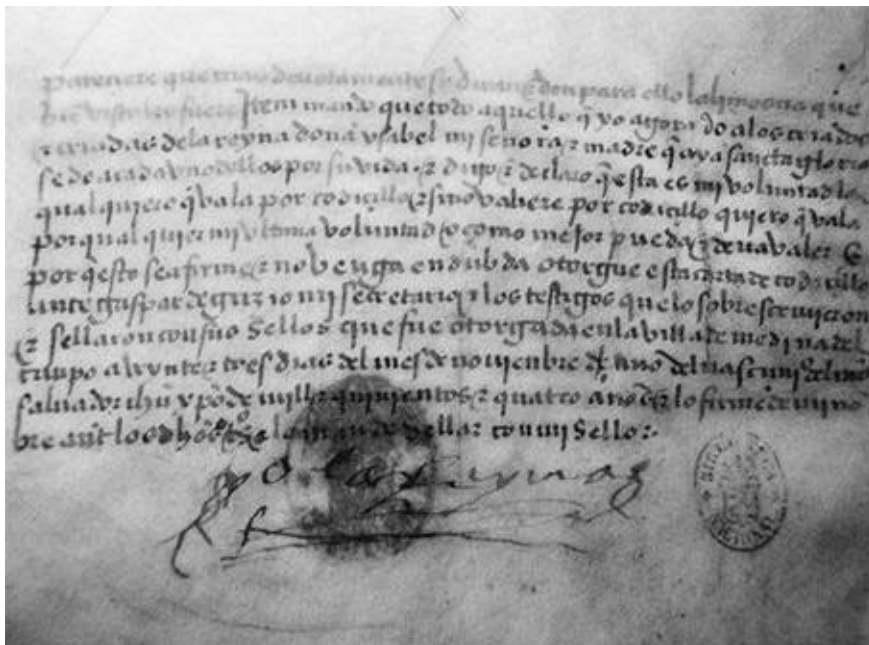 pareciere que mas devotamente se diran & den para ello la limosna que
bien visto les fuere Item mando que todo aquello q̃ yo agora do a los criados
& criadas dela reyna doña ysabel mi señora & madre q̃ aya sancta gloria
se de a cada vno dellos por su vida & digo & declaro q̃ esta es mi voluntad la
qual quiero q̃ vala por codicillo & si no valiere por codicillo quiero q̃ vala
por qual quier mi vltima voluntad o como mejor pueda & deva valer &
por q̃ esto sea firme & no venga en dubda otorgue esta carta de codicillo
ante gaspar de grizio mi secretario & los testigos que lo sobrescrivieron
& sellaron con sus sellos que fue otorgada en la villa de medina del
campo a veynte & tres dias del mes de noviembre año del nascimi° del nro
salvador ihũ xp̃o de mill & quinientos & quatro años & lo firme de mi nõ
bre ant los dhõs t°s & la mande sellar con mi sello
yo la reyna